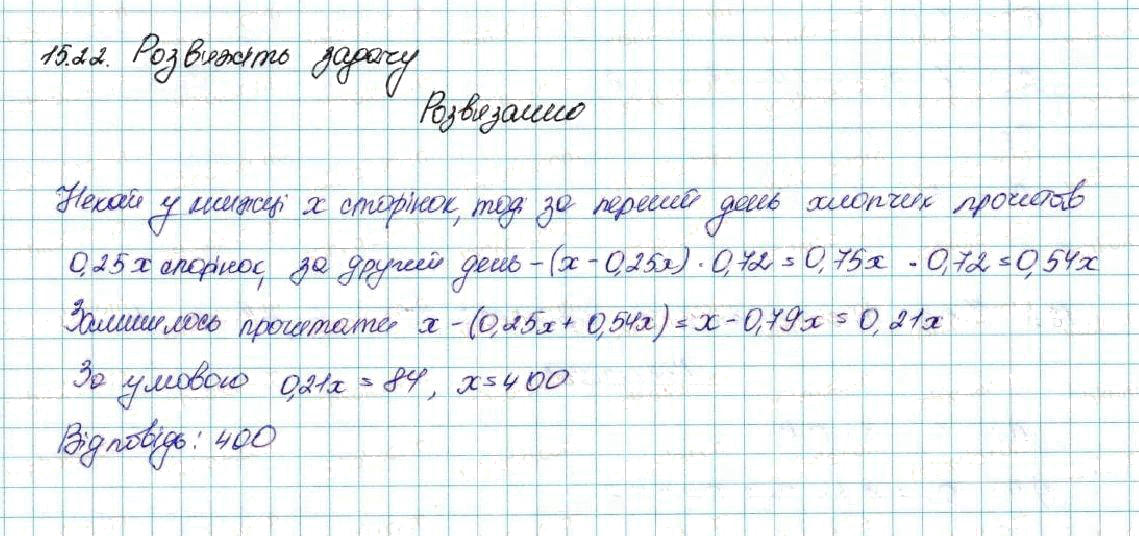 15.22. Розвяжіть задачу
Розвязання
Нехай у книжці x сторінок, тоді за перший день хлопчик прочитав
0,25x сторінок, за другий день - (x - 0,25x) · 0,72 = 0,75x · 0,72 = 0,54x
Залишилось прочитати x - (0,25x + 0,54x) = x - 0,79x = 0,21x
За умовою 0,21x = 84, x = 400
Відповідь: 400